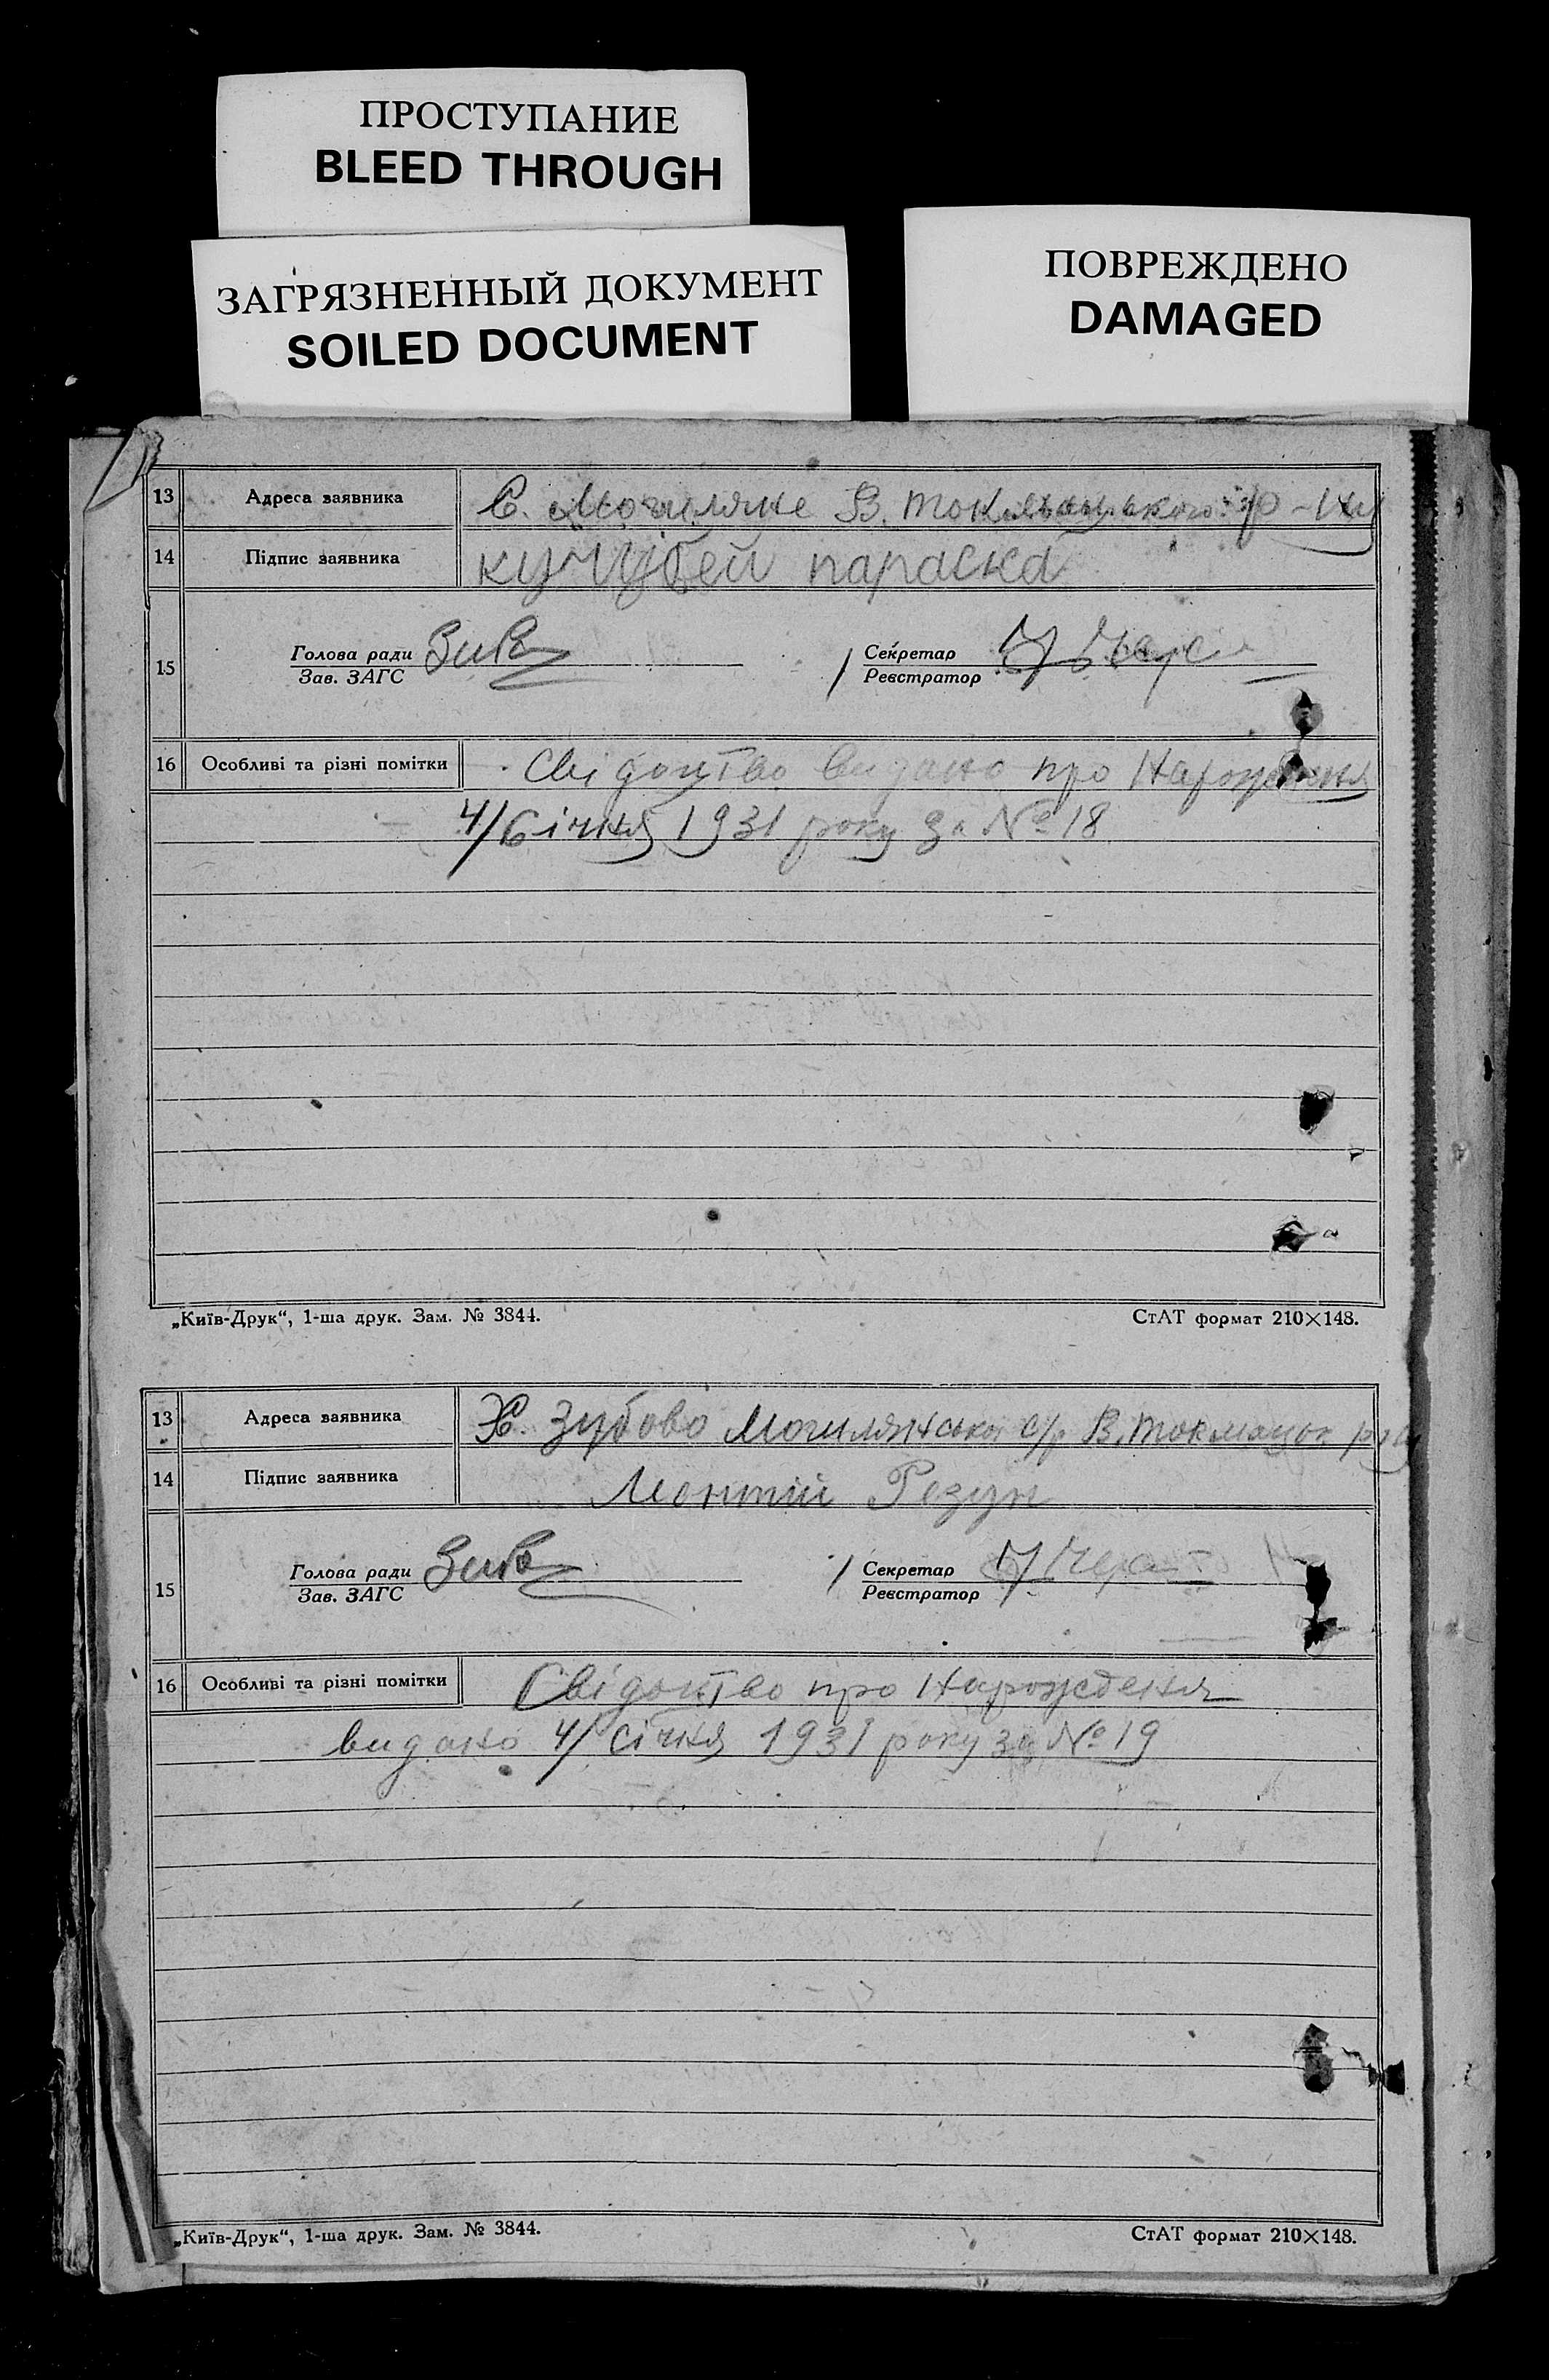 ПРОСТУПАНИЕ
BLEED THROUGH
ЗАГРЯЗНЕННЫЙ ДОКУМЕНТ
SOILED DOCUMENT
ПОВРЕЖДЕНО
DAMAGED
13 Адреса заявника С. Могиляне В. Токмацького р-ну
14 Підпис заявника кучубей параска
15 Голова ради Секретар
Зав. ЗАГС Реєстратор
16 Особливі та різні помітки Свідоцтво видано про Народження
4/Січня 1931 року за № 18
„Київ-Друк“, 1-ша друк. Зам. № 3844. СтАТ формат 210×148.
13 Адреса заявника Х. Зубово Могилянської с/р В. Токмацьк
14 Підпис заявника Резун
15 Голова ради Секретар
Зав. ЗАГС Реєстратор
16 Особливі та різні помітки Свідоцтво про Народження
видано 4/Січня 1931 року за № 19
„Київ-Друк“, 1-ша друк. Зам. № 3844. СтАТ формат 210×148.